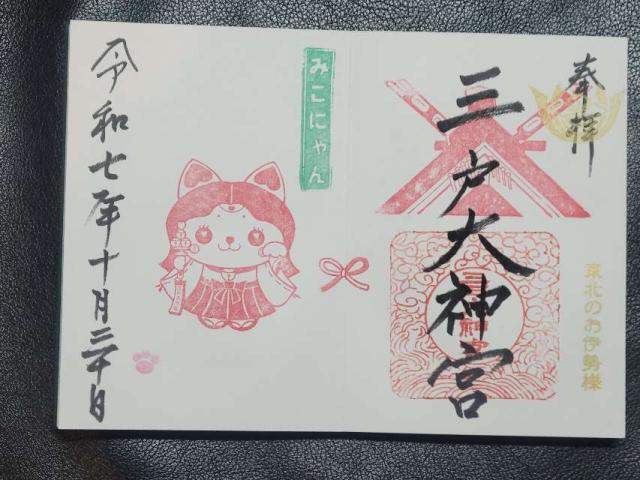 奉拝
三戸大神宮
東北のお伊勢様
みこにゃん
令和七年十月二十日